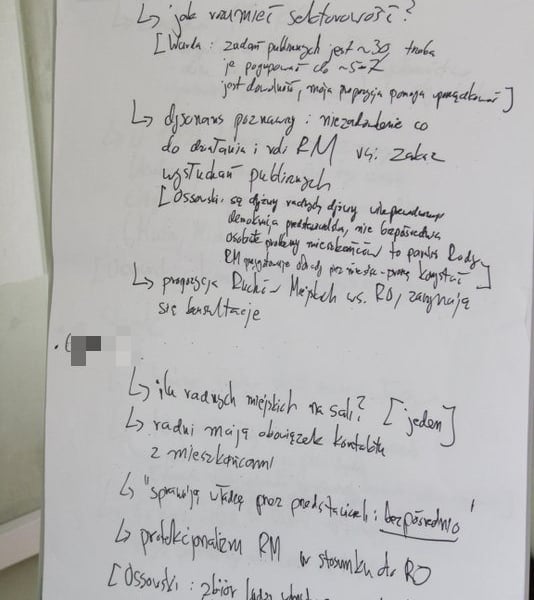 ↳ jak rozumieć sektorowość?
[Warda: zadań publicznych jest ~30, trzeba
je pogrupować do ~5-7
jest dowolność, moja propozycja pomaga uporządkować]
↳ dysonans poznawczy i niezadowolenie co
do działania i roli RM vs; zakaz
wysłuchań publicznych
[Ossowski: są dyżury radnych, dyżury
demokracja przedstawicielska, nie bezpośrednia
osobiste problemy mieszkańców to poza Radą
RM przygotowuje - proszę korzystać]
↳ propozycja Ruchów Miejskich ws. RO, zaczynają
się konsultacje
↳ ilu radnych miejskich na sali? [jeden]
↳ radni mają obowiązek kontaktu
z mieszkańcami
↳ "sprawują władzę przez przedstawicieli i bezpośrednio"
↳ protekcjonalizm RM w stosunku do RO
[Ossowski: zbiór